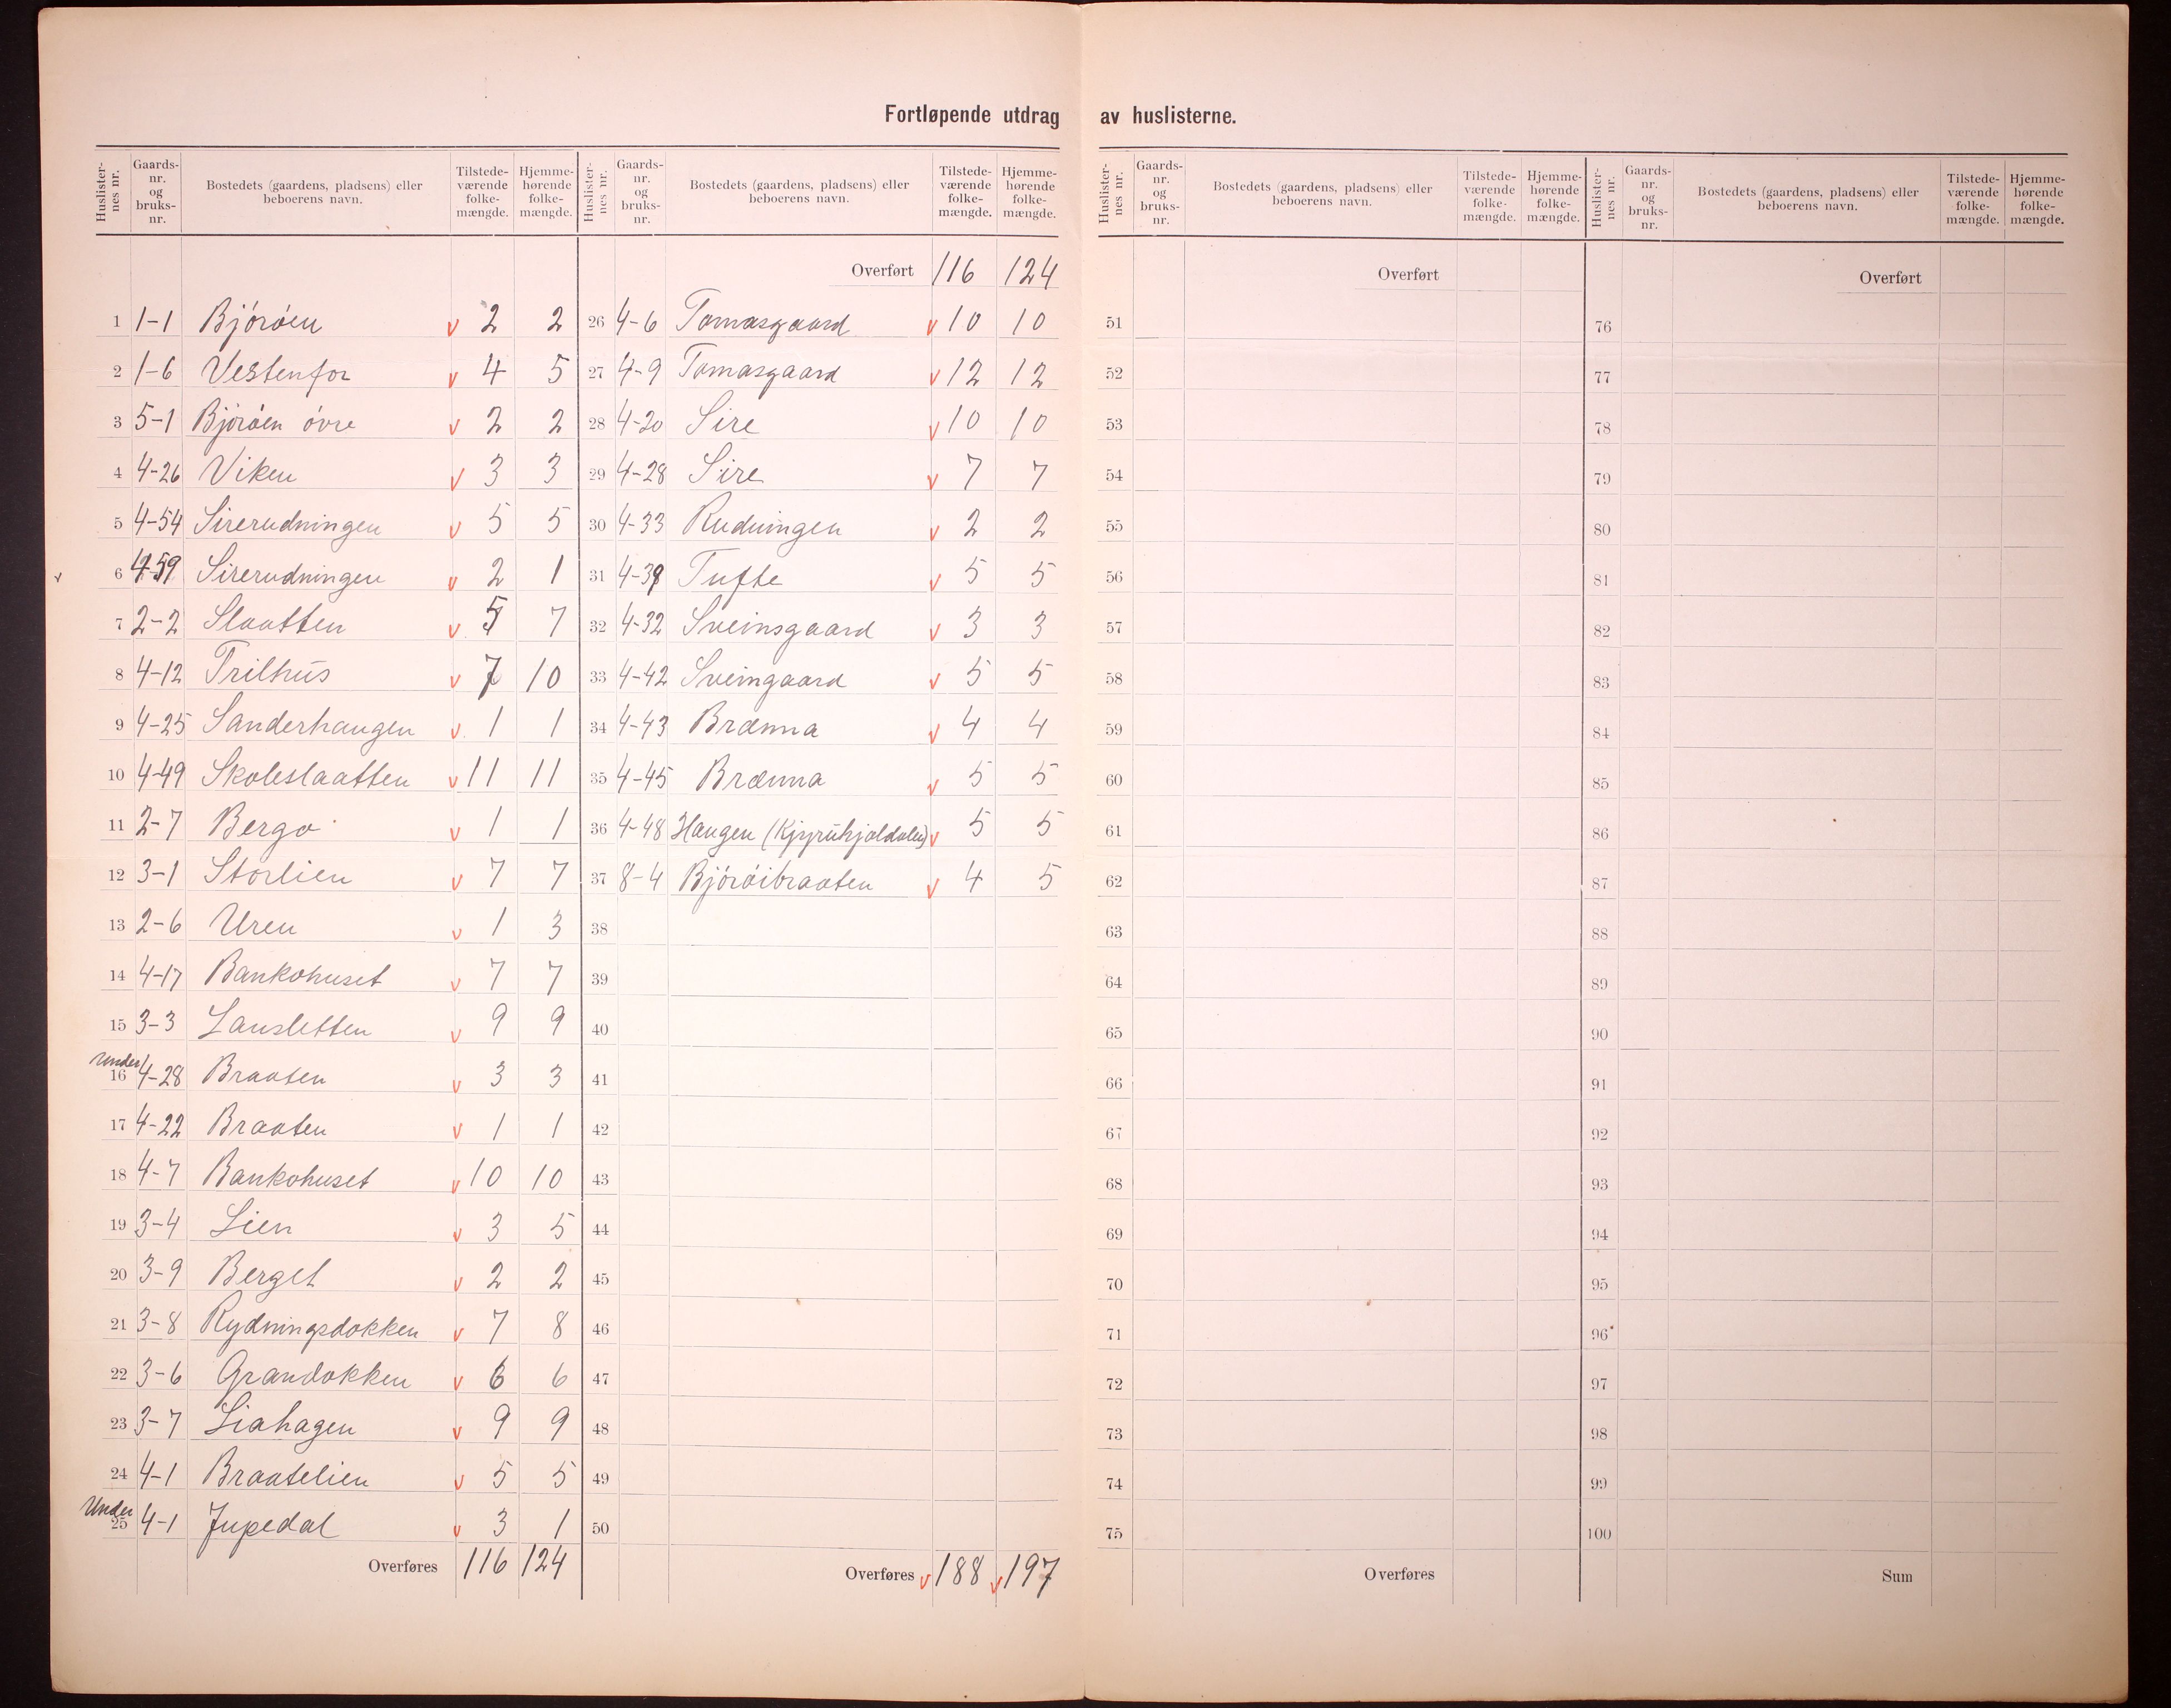 Fortløpende utdrag av huslisterne.
Huslisternes nr. Gaards-nr. og bruks-nr. Bostedets (gaardens, pladsens) eller beboerens navn. Tilstede-værende folke-mængde. Hjemme-hørende folke-mængde.
1 1-1 Björöen v 2 2
2 1-6 Vestenfor v 4 5
3 5-1 Björöen övre v 2 2
4 4-26 Viken v 3 3
5 4-54 Sirerudningen v 5 5
v 6 4-59 Sirerudningen v 2 1
7 2-2 Slaatten v 5 7
8 4-12 Trilhus v 7 10
9 4-25 Sanderhaugen v 1 1
10 4-49 Skoleslaatten v 11 11
11 2-7 Bergo v 1 1
12 3-1 Storlien v 7 7
13 2-6 Uren v 1 3
14 4-17 Bankohuset v 7 7
15 3-3 Lausletten v 9 9
Under
16 4-28 Braaten v 3 3
17 4-22 Braaten v 1 1
18 4-7 Bankohuset v 10 10
19 3-4 Lien v 3 5
20 3-9 Berget v 2 2
21 3-8 Rydningsdokken v 7 8
22 3-6 Grandokken v 6 6
23 3-7 Liahagen v 9 9
24 4-1 Braatelien v 5 5
Under
25 4-1 Jupedal v 3 1
Overføres 116 124
Huslisternes nr. Gaards-nr. og bruks-nr. Bostedets (gaardens, pladsens) eller beboerens navn. Tilstede-værende folke-mængde. Hjemme-hørende folke-mængde.
Overført 116 124
26 4-6 Tomasgaard v 10 10
27 4-9 Tomasgaard v 12 12
28 4-20 Sire v 10 10
29 4-28 Sire v 7 7
30 4-33 Rudningen v 2 2
31 4-39 Tufte v 5 5
32 4-32 Sveinsgaard v 3 3
33 4-42 Sveingaard v 5 5
34 4-43 Brænna v 4 4
35 4-45 Brænna v 5 5
36 4-48 Haugen v 5 5
37 8-4 Björöibraaten v 4 5
38
39
40
41
42
43
44
45
46
47
48
49
50
Overføres v 188 v 197
Huslisternes nr. Gaards-nr. og bruks-nr. Bostedets (gaardens, pladsens) eller beboerens navn. Tilstede-værende folke-mængde. Hjemme-hørende folke-mængde.
Overført
51
52
53
54
55
56
57
58
59
60
61
62
63
64
65
66
67
68
69
70
71
72
73
74
75
Overføres
Huslisternes nr. Gaards-nr. og bruks-nr. Bostedets (gaardens, pladsens) eller beboerens navn. Tilstede-værende folke-mængde. Hjemme-hørende folke-mængde.
Overført
76
77
78
79
80
81
82
83
84
85
86
87
88
89
90
91
92
93
94
95
96
97
98
99
100
Sum